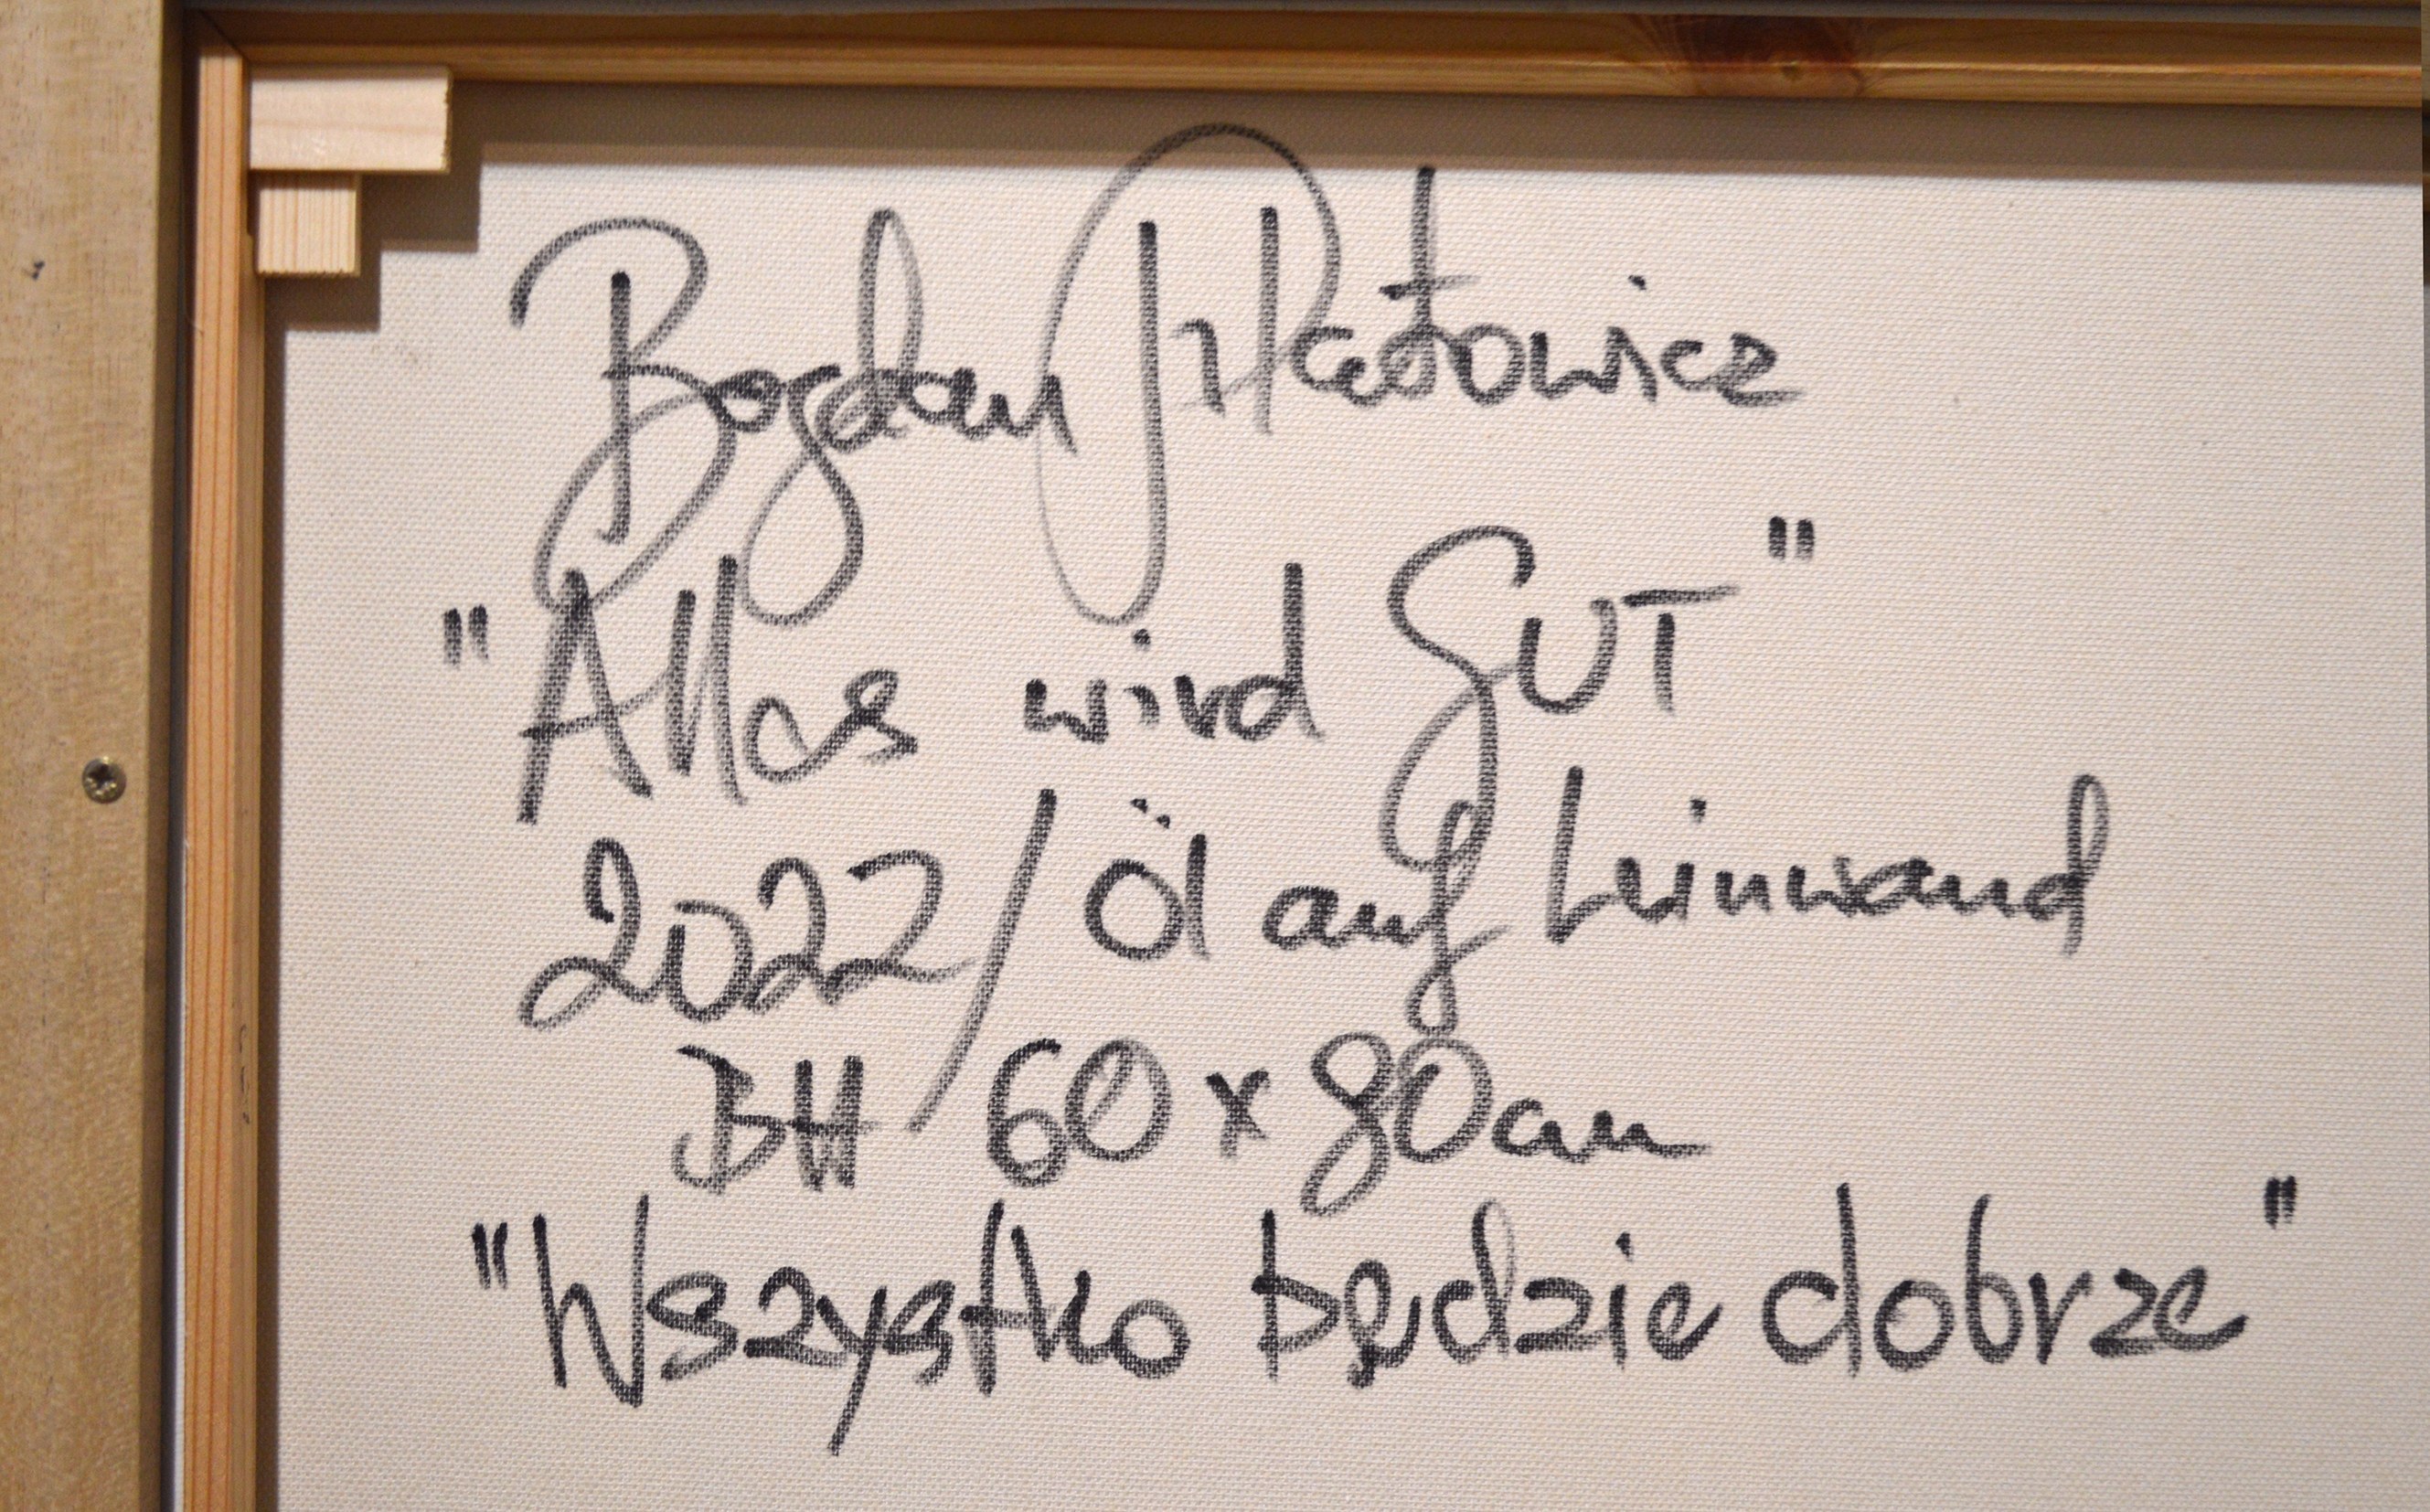 Bogdan
"Alles wird GUT"
2022/ Öl auf Leinwand
BH 60 x 80cm
"Wszystko będzie dobrze"